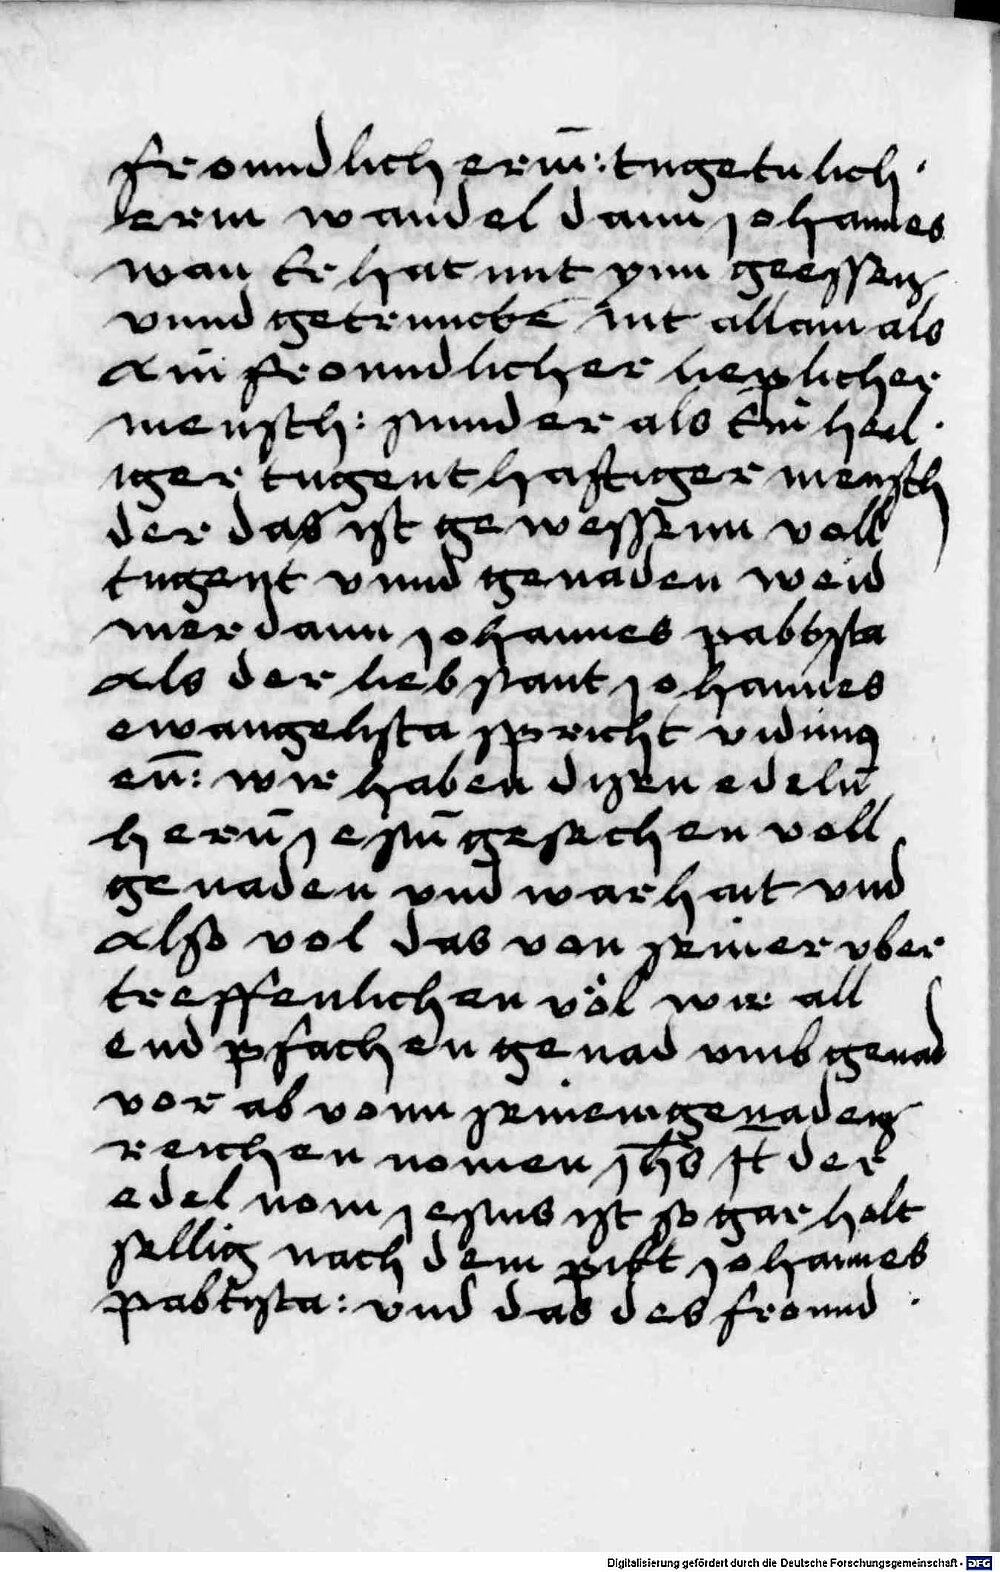 froundlich erm̅: tugetu lich ·
lerm wandel dann johannes
wan Er hat mit ynn geessen
vnnd getruncke̅ nit allain als
ain froundlicher lieplicher
mensch: sunder als Ein heil ·
iger tugent hafftiger mensch
der das ist gewessenn voll
tugent vnnd genaden weid
mer dann johannes pabtysta
Als der lieb sant johannes
ewangelista spricht vidimus
eu̅: wir haben disen edeln̅
heru̅ jesu̅ gesechen voll
genaden vnd warhait vnd
Also vol das von seiner vber
treffenlichen völ wir all
end pfachen genad vmb genad
vor ab vonn seinem genaden
reichen nomen jh̅s jt̅ der
edel nom jesus ist so gar holt
sellig nach dem pibt johannes
pabtysta: vnd das des fround ·
Digitalisierung gefördert durch die Deutsche Forschungsgemeinschaft - DFG